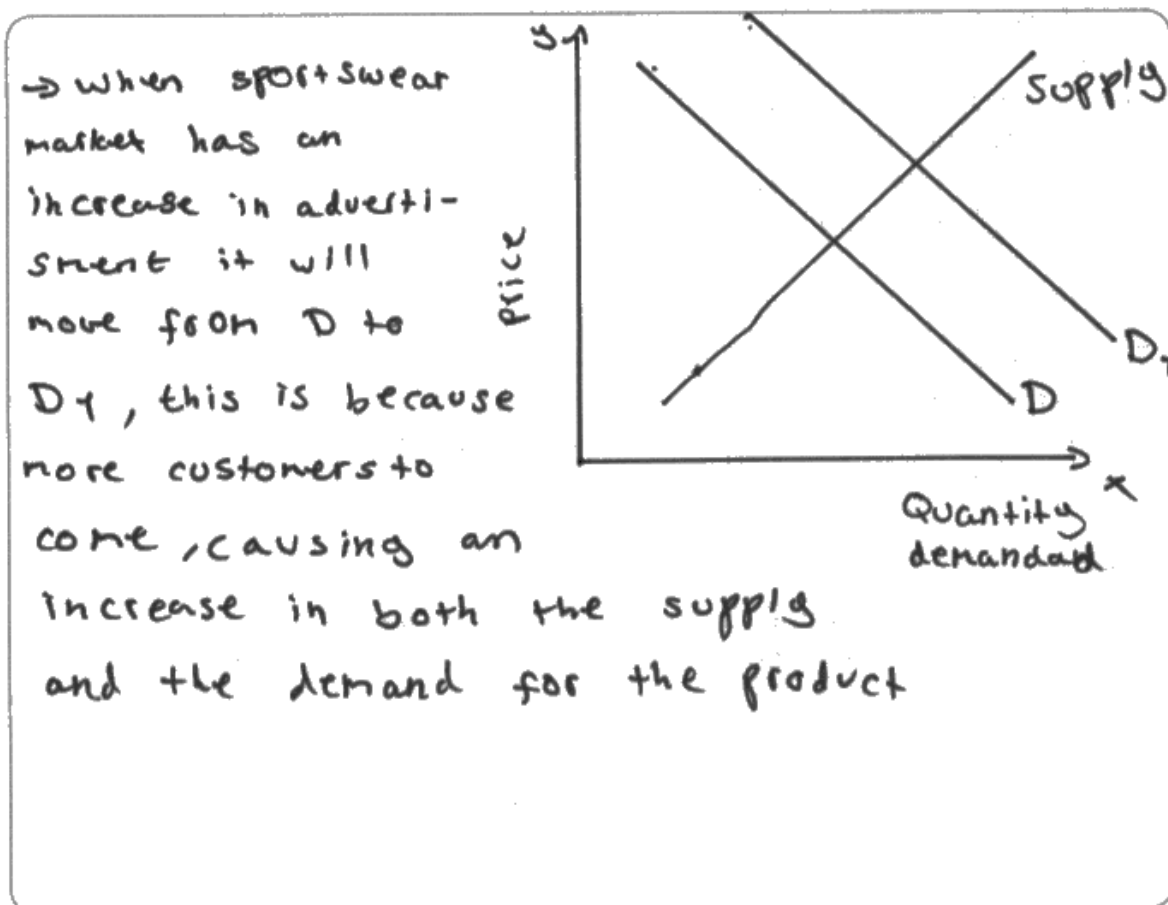 → When sportswear
market has an
increase in adverti-
sment it will
move from D to
D1, this is because
more customers to
come, causing an
increase in both the supply
and the demand for the product
y
price
supply
D1
D
x
Quantity
demandad